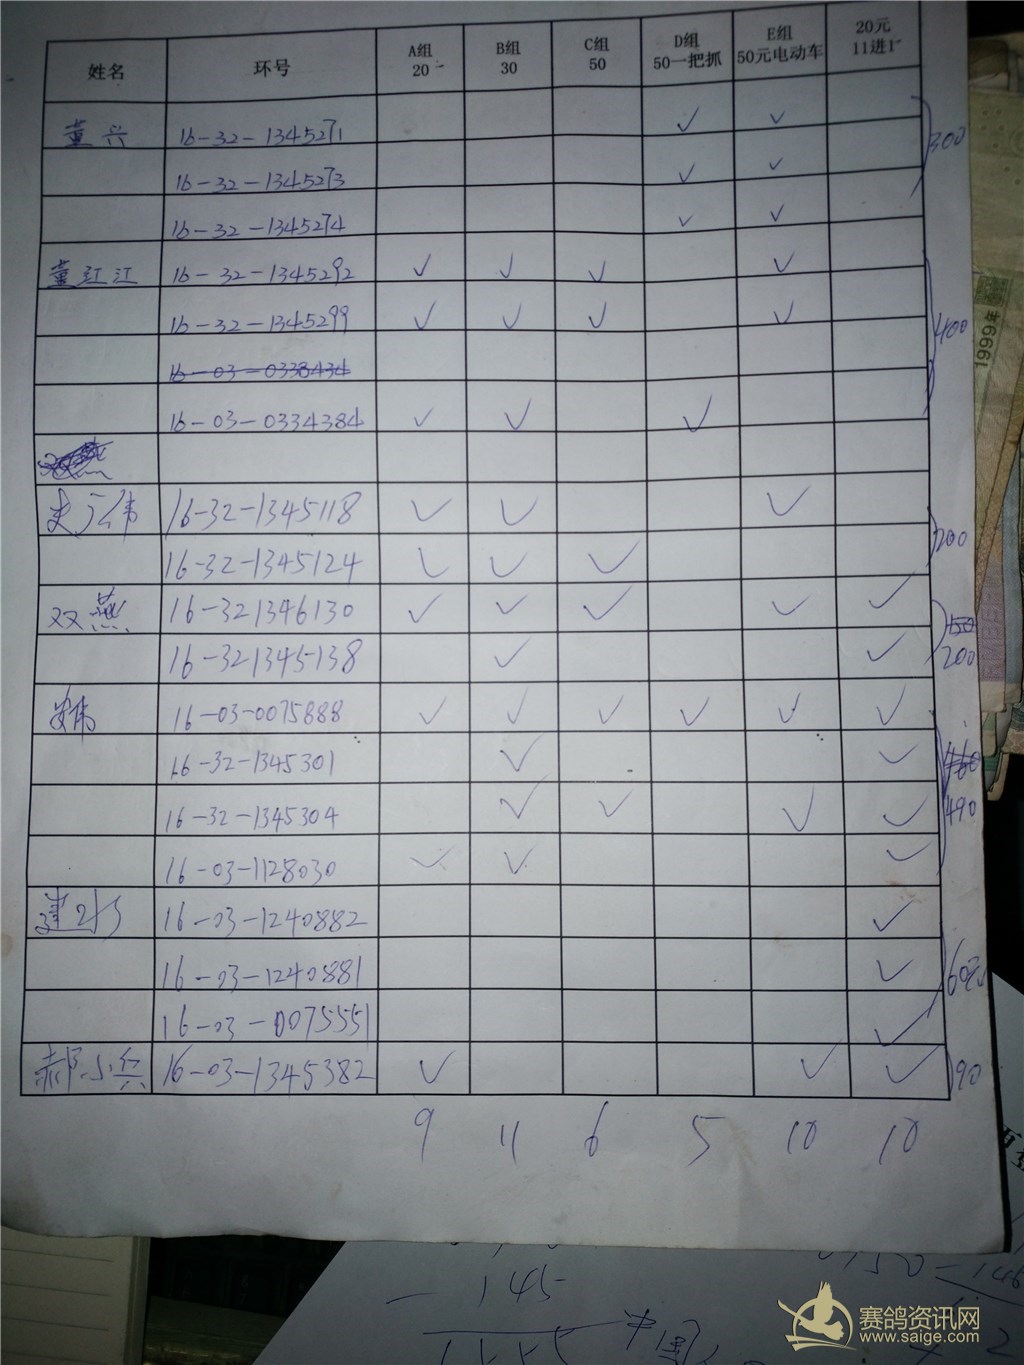 姓名 环号 A组 20 B组 30 C组 50 D组 50一把抓 E组 50元电动车 20元 11进1
董兴 16-32-1345271 ✓ ✓ 300
16-32-1345273 ✓ ✓
16-32-1345274 ✓ ✓
董红江 16-32-1345292 ✓ ✓ ✓ ✓
16-32-1345299 ✓ ✓ ✓ ✓ 400
16-03-0338434
16-03-0334384 ✓ ✓ ✓
16-32-1345118 ✓ ✓ ✓
16-32-1345124 ✓ ✓ ✓ 200
双燕 16-321346130 ✓ ✓ ✓ ✓ ✓ 150
16-321345138 ✓ ✓ 200
16-03-0075888 ✓ ✓ ✓ ✓ ✓ ✓
16-32-1345301 ✓ ✓ 460
16-32-1345304 ✓ ✓ ✓ ✓ 490
16-03-1128030 ✓ ✓ ✓
16-03-1240882 ✓
16-03-1240881 ✓ 60元
16-03-0075551 ✓
郝小兵 16-03-1345382 ✓ ✓ ✓ 90
9 11 6 5 10 10
1999年
RMB
145
赛鸽资讯网
www.saige.com